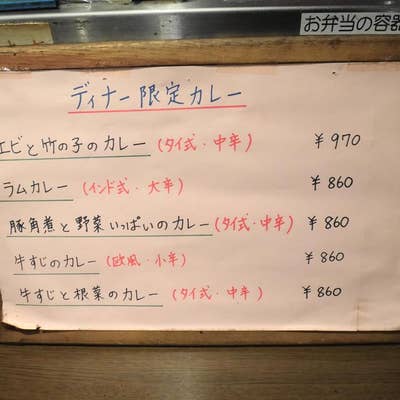 お弁当の容器
ディナー限定カレー
エビと竹の子のカレー (タイ式・中辛) ¥970
ラムカレー (インド式・大辛) ¥860
豚角煮と野菜いっぱいのカレー (タイ式・中辛) ¥860
牛すじのカレー (欧風・小辛) ¥860
牛すじと根菜のカレー (タイ式・中辛) ¥860